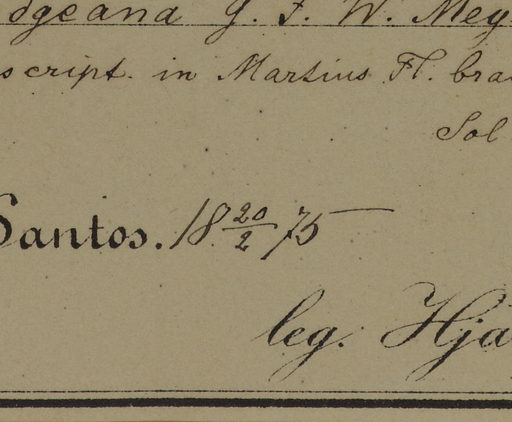 dgeana G. F. W. Mey
script. in Martius Fl. bra
Sol
Santos. 18 20/2 75
leg. Hja